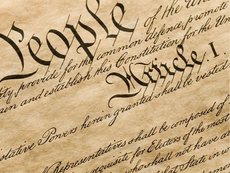 People
of the Un
fty provide for the common defence, promote
ain and establish this Constitution for the Un
Article. I.
slative Powers herein granted shall be vested
Representatives shall be composed of
requisite for Electors of the most
who shall not have
State in w